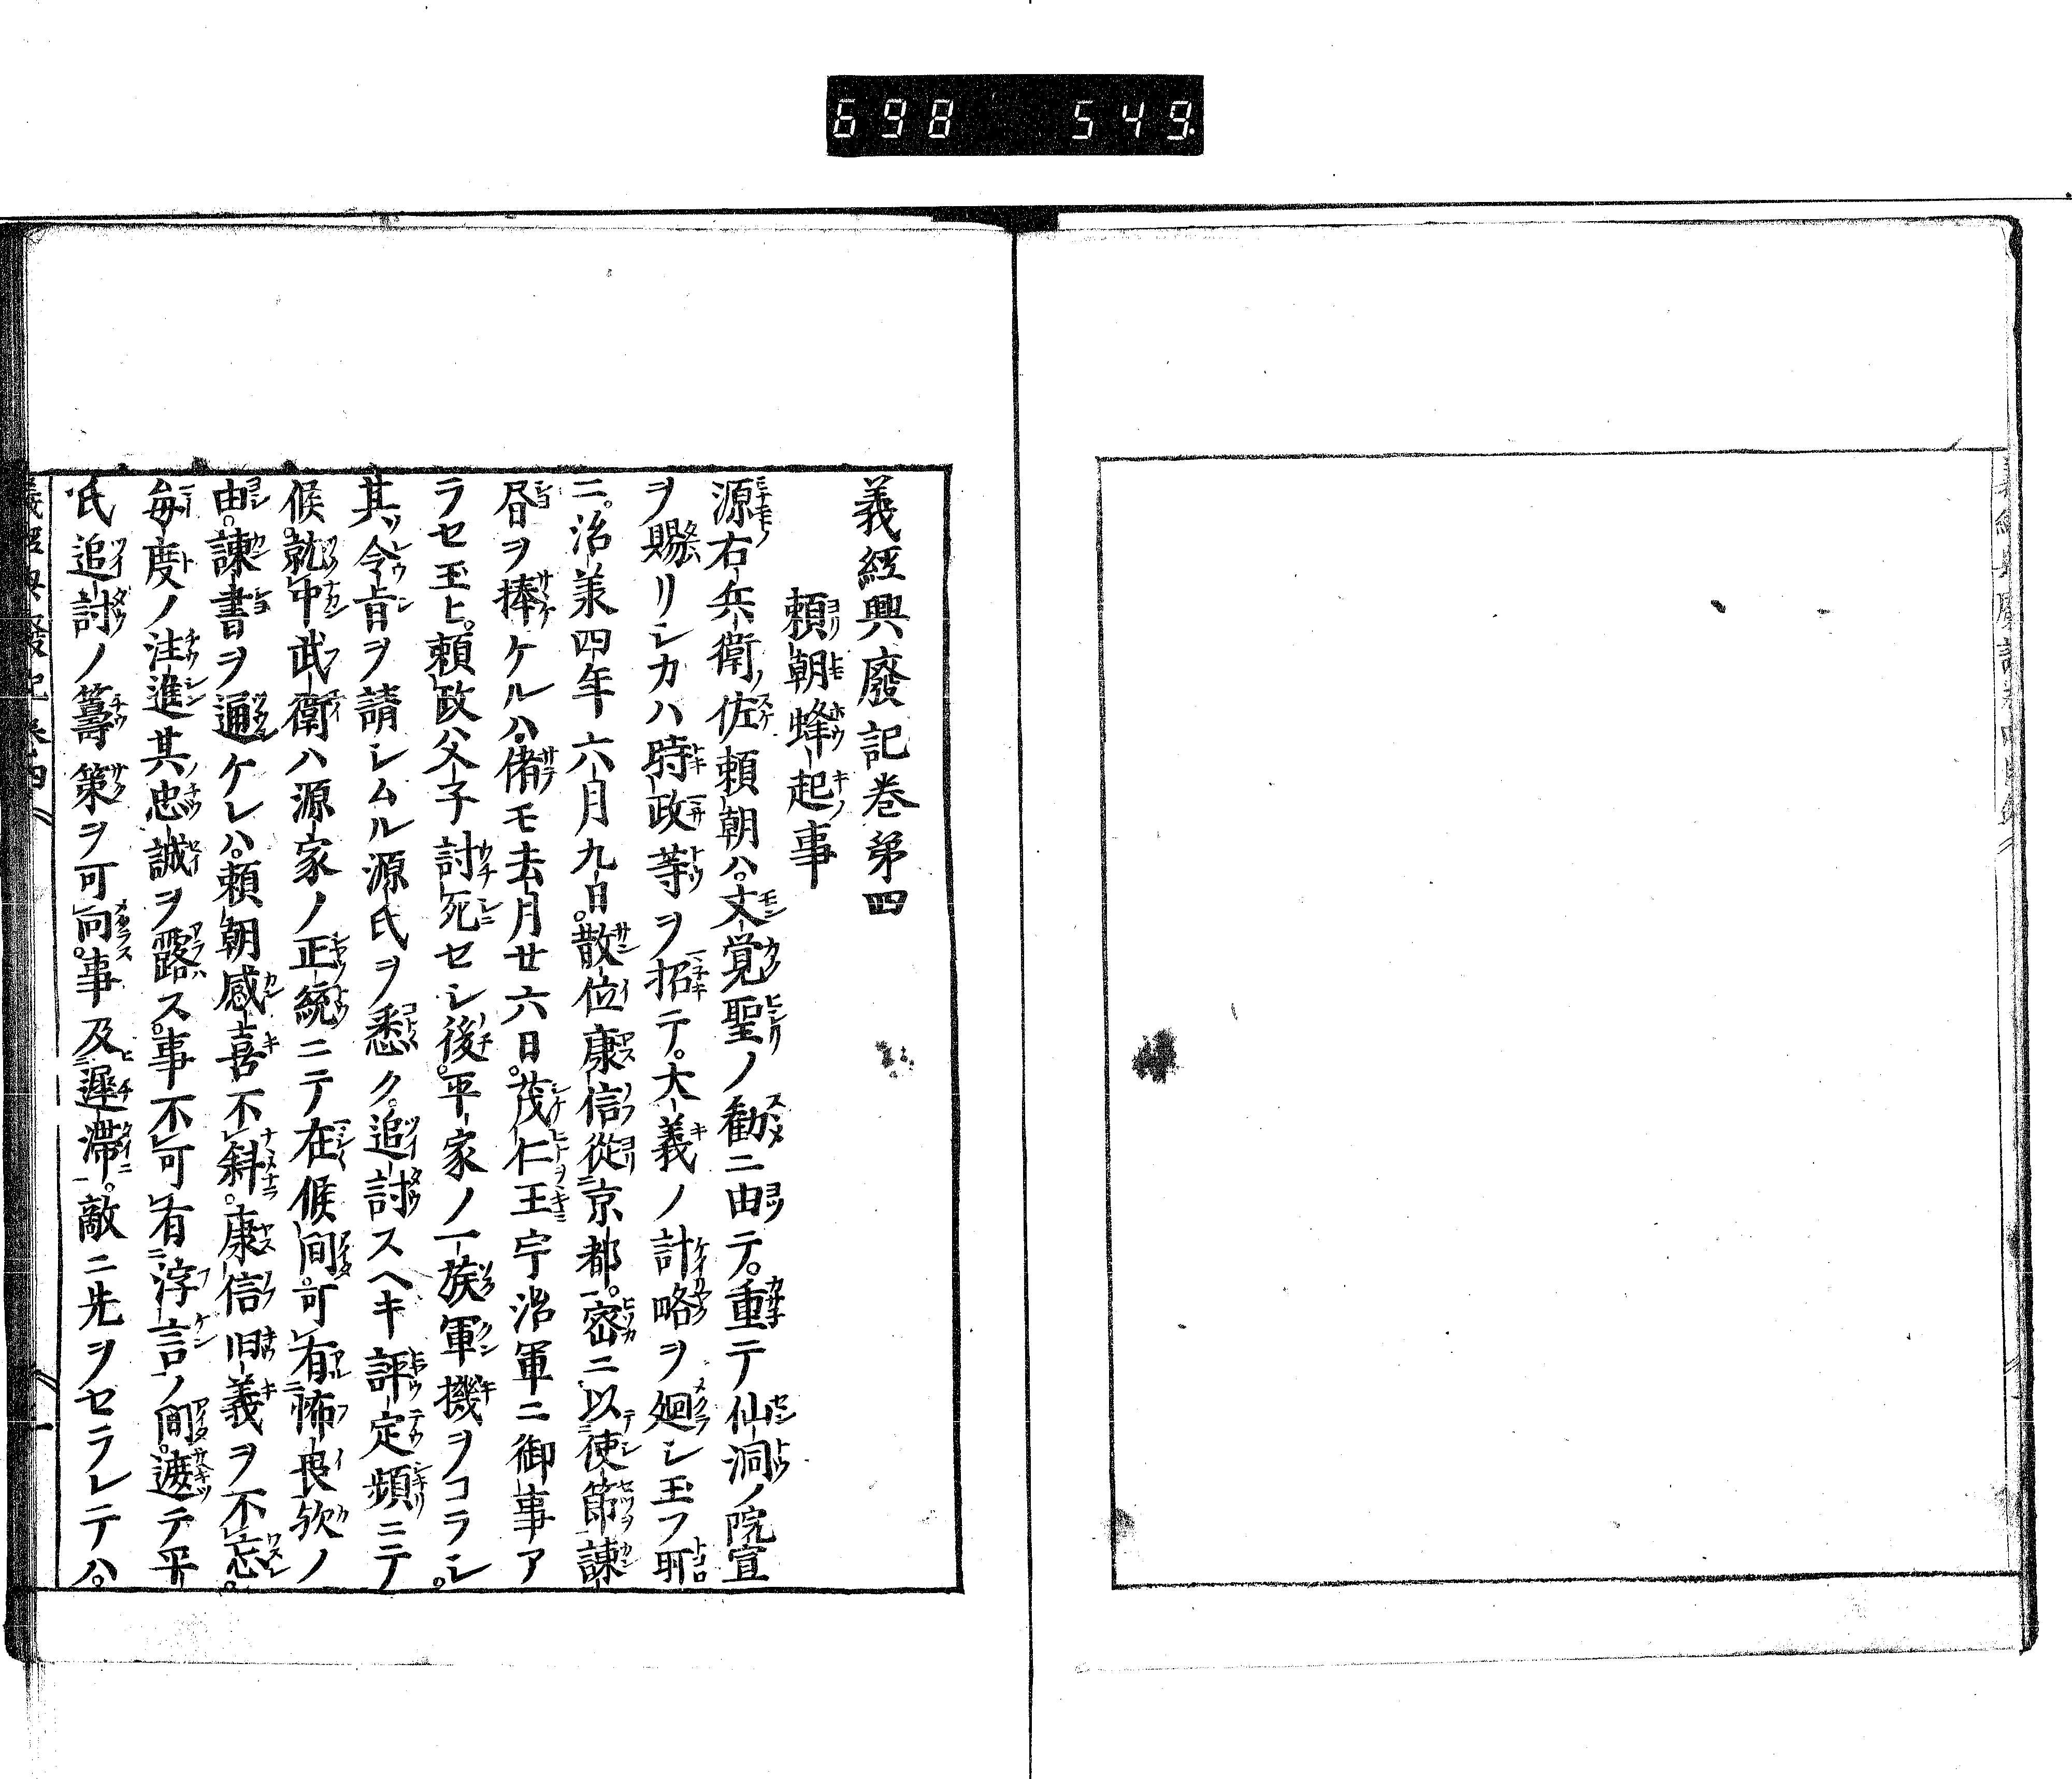 698 549
義経興廢記巻第四
頼朝蜂起事
源右兵衛佐頼朝ハ。文覚聖ノ勧ニ由テ。重テ仙洞ノ院宣
ヲ賜リシカハ時政等ヲ招テ。大義ノ計略ヲ廻シ玉フ所
ニ。治承四年六月九日。散位康信従京都。密ニ以使節諌
書ヲ捧ケルハ。偖モ去月廿六日。茂仁王宇治軍ニ御事ア
ラセ玉ヒ。頼政父子討死セシ後。平家ノ一族軍機ヲコラシ。
其ノ令旨ヲ請シムル源氏ヲ悉ク。追討スヘキ評定頻ニテ
候。就中武衛ハ源家ノ正統ニテ在候間。可有怖畏欤ノ
由。諌書ヲ通ケレハ。頼朝感喜不斜。康信旧義ヲ不忘。
毎度ノ注進其忠誠ヲ露ス。事不可有浮言ノ間。遮テ平
氏追討ノ籌策ヲ可向。事及遅滞。敵ニ先ヲセラレテハ。